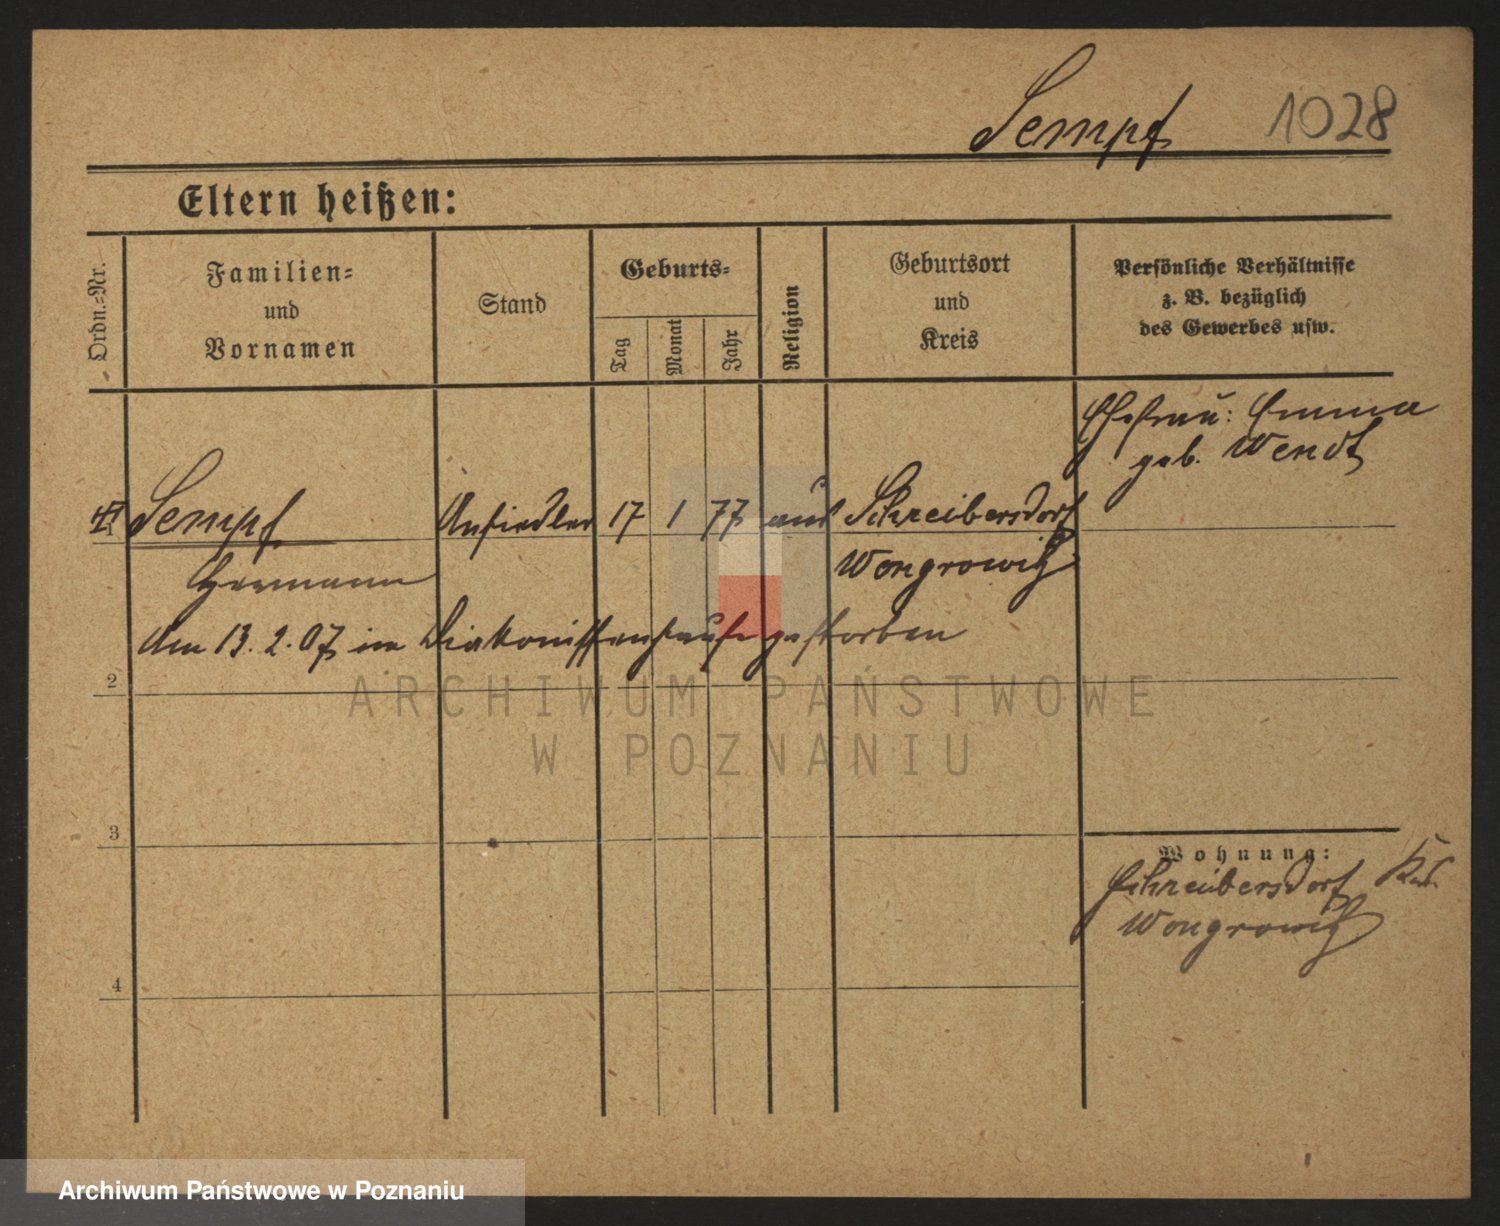 Sempf 1028
Eltern heißen:
Ordn.-Nr.
Familien-
und
Vornamen
Stand
Geburts-
Tag
Monat
Jahr
Religion
Geburtsort
und
Kreis
Persönliche Verhältnisse
z. B. bezüglich
des Gewerbes usw.
Ehefrau: Emma
geb. Wendt
1 Sempf Ansiedler 17 1 77 aus Schreibersdorf
Hermann Wongrowitz
Am 13. 2. 07 im Diakonissenhause gestorben
2
ARCHIWUM PAŃSTWOWE
W POZNANIU
3
Wohnung:
Schreibersdorf Krs.
Wongrowitz
4
Archiwum Państwowe w Poznaniu